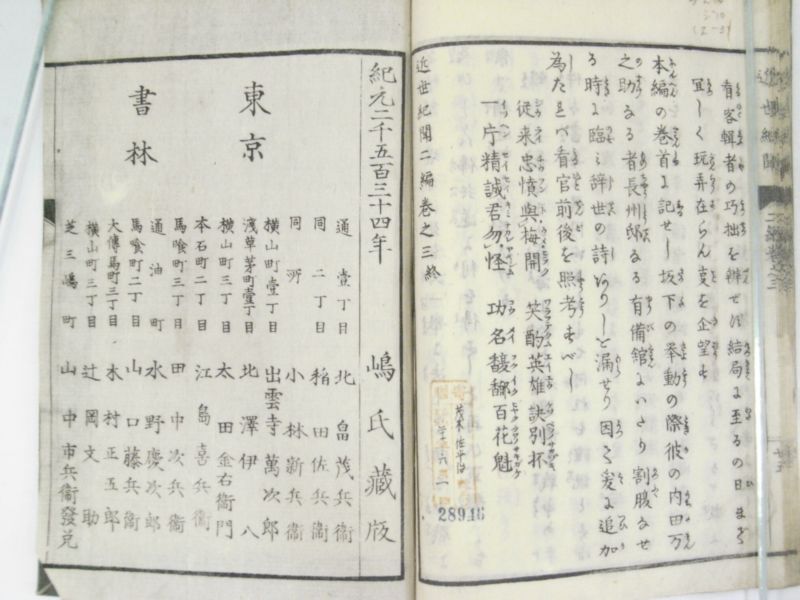 看客輯者の巧拙を辨ぜず結局に至るの日まで
宜しく玩弄在らん㕝を企望す
本編の巻首に記せし坂下の挙動の際彼の内田万
之助なる者長州邸なる有備館にいたり割腹なせ
る時に臨み辞世の詩ありしと漏せり因て爰に追加
為たれバ看官前後を照考すべし
従来忠憤與梅開 笑酌英雄訣別杯
一庁精誠君勿怪 功名馥郁百花魁
近世紀聞二編巻之三終
28946
近世紀聞
紀元二千五百三十四年 嶋氏藏版
東京
書林
通壹丁目 北畠茂兵衞
同二丁目 稲田佐兵衞
同所 小林新兵衞
横山町壹丁目 出雲寺萬次郎
浅草茅町壹丁目 北澤伊八
横山町三丁目 太田金右衞門
本石町二丁目 江島喜兵衞
馬喰町三丁目 田中次兵衞
通油町 水野慶次郎
馬喰町二丁目 山口藤兵衞
大傳馬町三丁目 木村正五郎
横山町三丁目 辻岡文助
芝三嶋町 山中市兵衞發兌